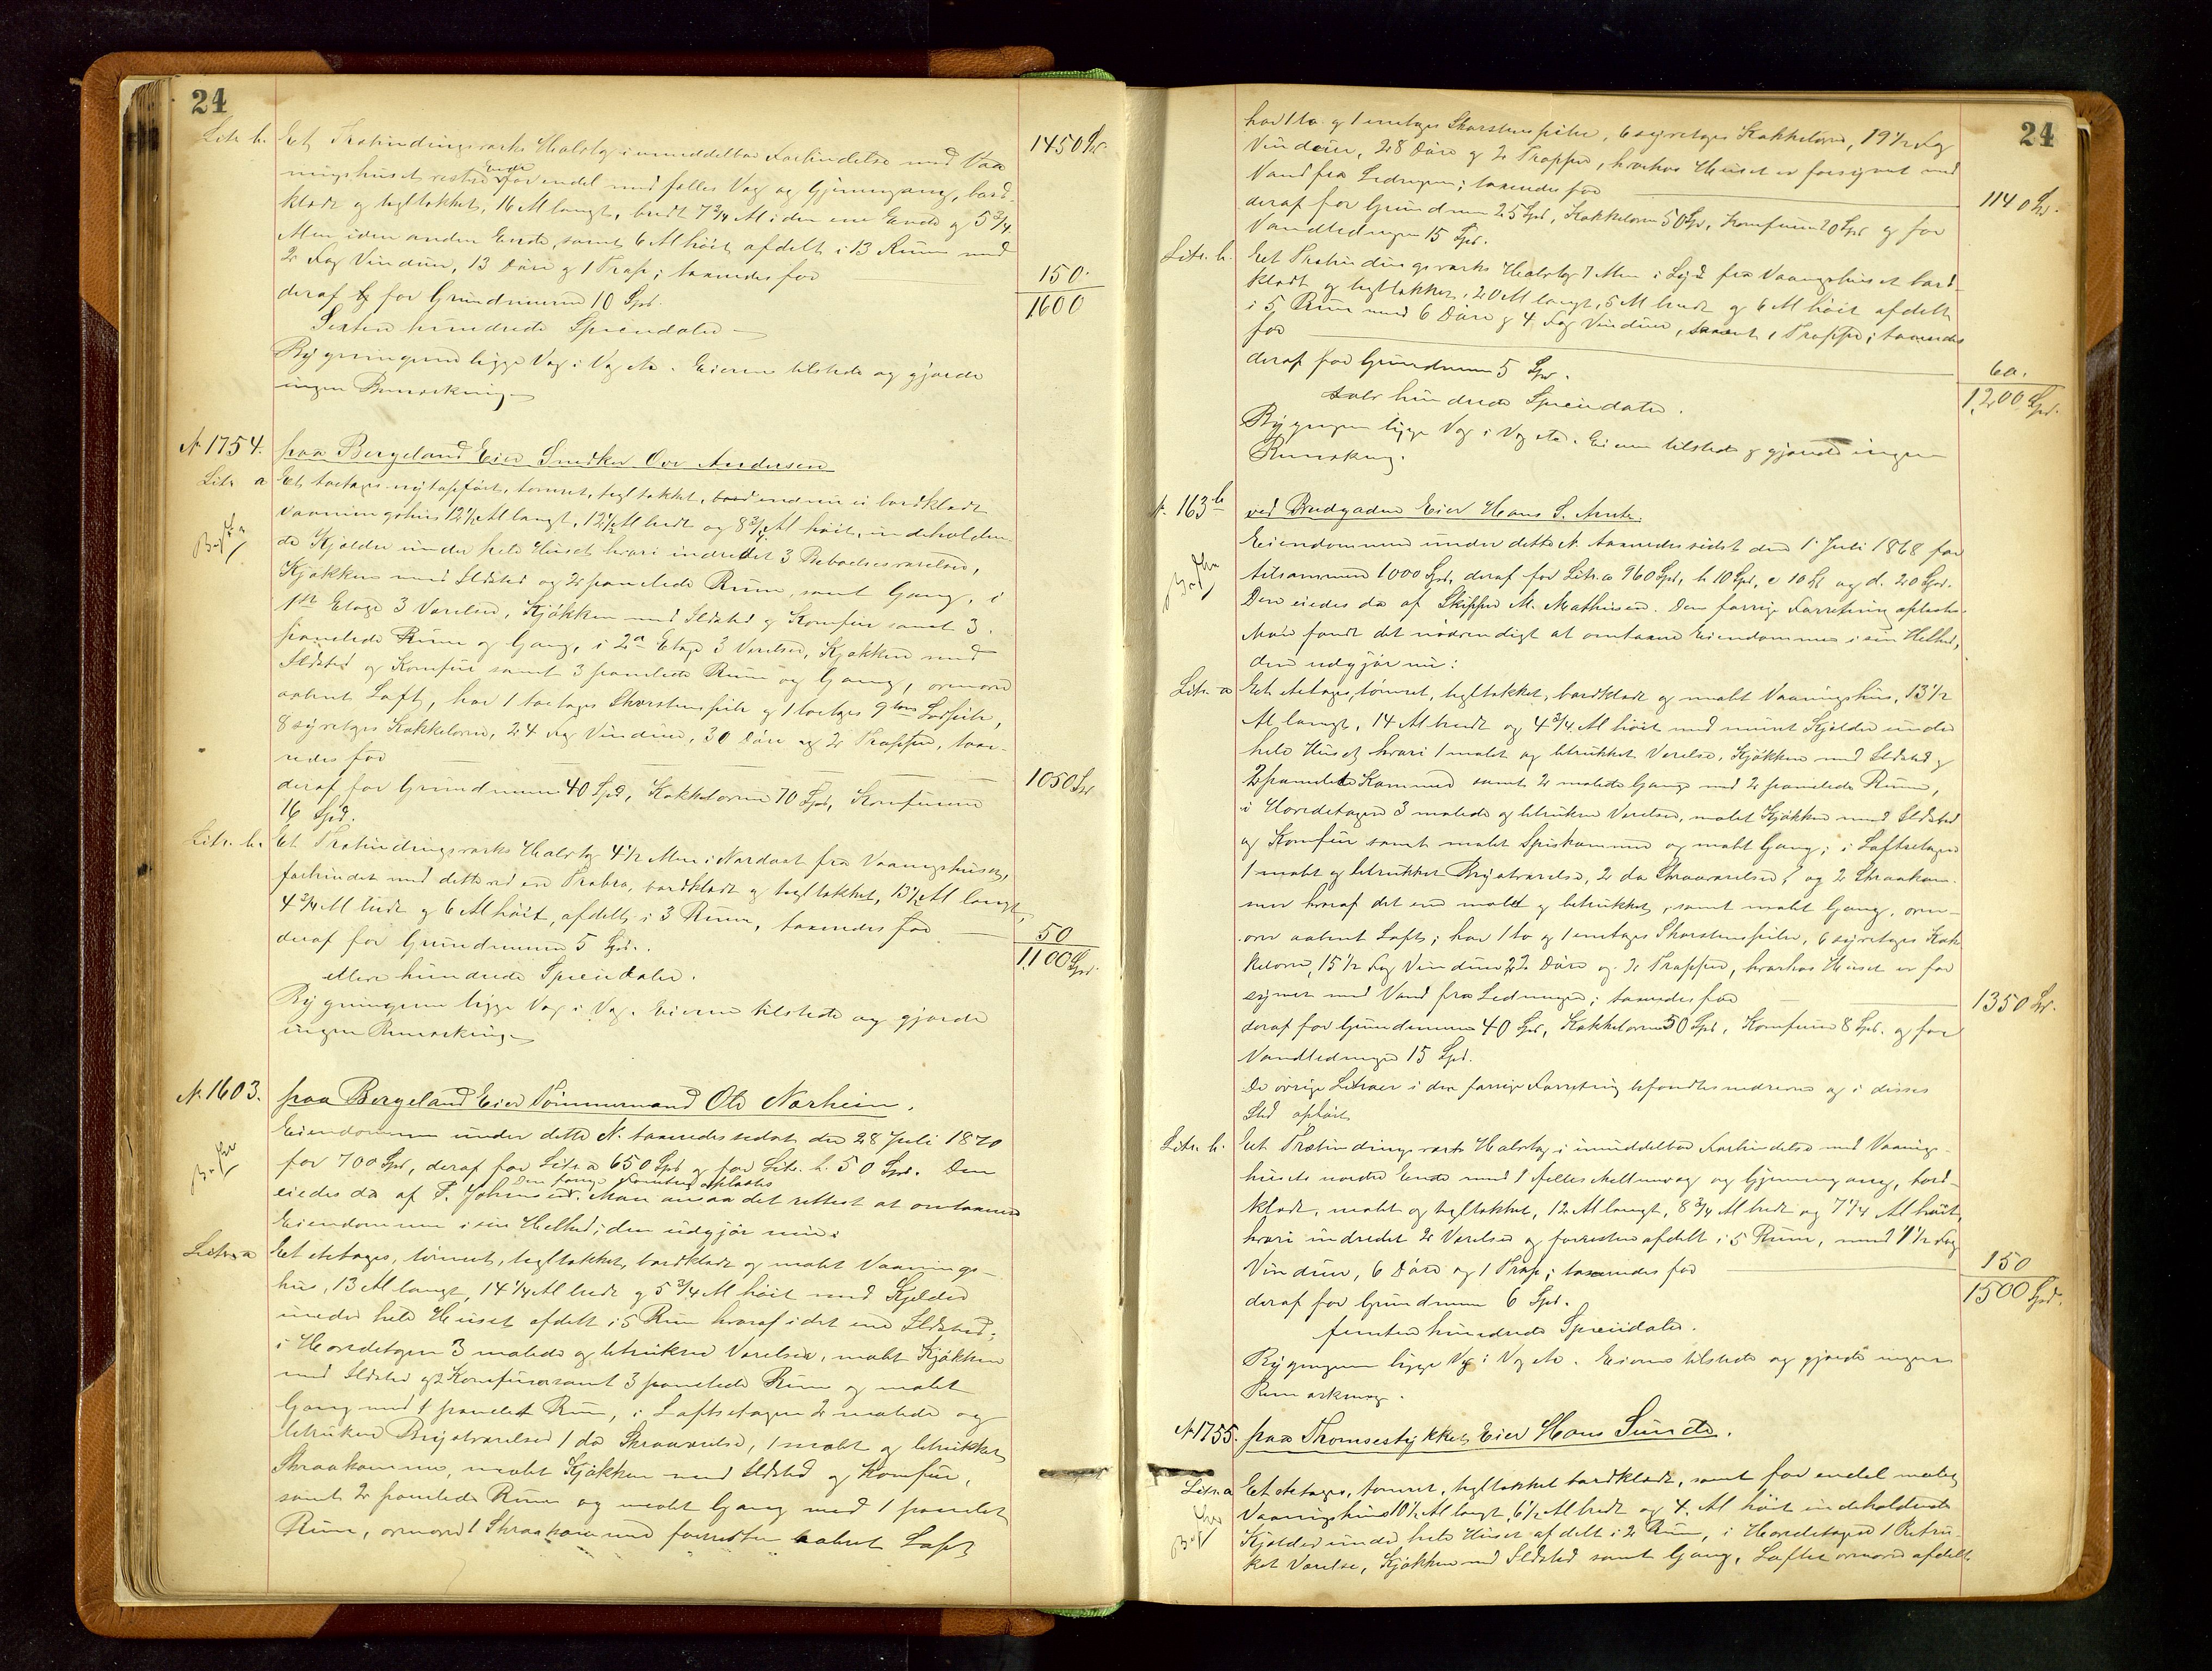 24
Litr. b. Et Træbindingsværks Halvtag i umiddelbar Forbindelse med Vaa- 1450 Spd.
ningshuset vestre Ende for endel med fælles Væg og Gjennemgang, bord-
klædt og tegltækket, 16 Al langt, bredt 7 3/4 Al i den ene Ende og 5 3/4
Alen i den anden Ende, samt 6 Al høit afdelt i 13 Rum med
2 Fag Vinduer, 13 Døre og 1 Trap; taxeredes for 150.
deraf for Grundmuren 10 Spd. 1600
Sexten hundrede Speciedaler
Bygningerne ligge Væg i Væg etc. Eieren tilstede og gjorde
ingen Bemærkning
N. 1754. paa Bergeland Eier Snedker Ove Andersen
Litr. a Et toetages nyopført, tømret, tegltækket, endnu ei bordklædt
Vaaningshus 12 1/2 Al langt, 12 1/2 Al bredt og 8 3/4 Al høit, indeholden-
de Kjelder under hele Huset hvori indredet 3 Beboelsesværelser,
Kjøkken med Ildsted og 2 panelede Rum, samt Gang, i
1ste Etage 3 Værelser, Kjøkken med Ildsted og Komfur samt 3
panelede Rum og Gang, i 2den Etage 3 Værelser, Kjøkken med
Ildsted og Komfur samt 3 panelede Rum og Gang, ovenover
aabent Loft, har 1 toetages Skorstenspibe og 1 toetages 9 toms Lodpibe,
8 syvetages Kakkelovne, 24 Fag Vinduer, 30 Døre og 2 Trapper, taxe-
redes for 1050 Spd
deraf for Grundmuren 40 Spd, Kakkelovne 70 Spd, Komfurene
16 Spd.
Litr. b. Et Træbindingsværks Halvtag 4 1/2 Alen i Nordost fra Vaaningshuset,
forbundet med dette ved en Træbro, bordklædt og tegltækket, 13 1/2 Al langt,
4 3/4 Al bredt og 6 Al høit, afdelt i 3 Rum, taxeredes for 50
deraf for Grundmuren 5 Spd. 1100 Spd.
elleve hundrede Speciedaler.
Bygningerne ligge Væg i Væg. Eieren tilstede og gjorde
ingen Bemærkning
N. 1603. paa Bergeland Eier Tømmermand Ole Norheim.
Eiendommen under dette N. taxeredes sidst den 28 Juli 1870
for 700 Spd, deraf for Litr. a 650 Spd og for Litr. b. 50 Spd. Den
eiedes da af P. Johnsen. Den forrige Forretning oplæstes. Man ansaa det rettest at omtaxere
Eiendommen i sin Helhed; den udgjør nu:
Litr. a Et etetages, tømret, tegltækket, bordklædt og malet Vaanings-
hus, 13 Al langt, 14 1/4 Al bredt og 5 3/4 Al høit med Kjelder
under hele Huset afdelt i 5 Rum hvoraf i det ene Ildsted;
i Hovedetagen 3 malede og betrukne Værelser, malet Kjøkken
med Ildsted og Komfur samt 3 panelede Rum og malet
Gang med 1 panelet Rum, i Loftsetagen 2 malede og
betrukne Brystværelser 1 do Skraaværelse, 1 malet og betrukket
Skraakammer, malet Kjøkken med Ildsted og Komfur,
samt 2 panelede Rum og malet Gang med 1 panelet
Rum, ovenover 1 Skraakammer forresten aabent Loft
24
har 1 to og 1 enetages Skorstenspibe, 6 syvetages Kakkelovne, 19 1/2 Fag
Vinduer, 28 Døre og 2 Trapper, hvorhos Huset er forsynet med
Vand fra Ledningen; taxeredes for 1140 Spd.
deraf for Grundmuren 25 Spd, Kakkelovne 50 Spd, Komfurene 20 Spd og for
Vandledningen 15 Spd.
Litr. b. Et Træbindingsværks Halvtag 7 Alen i Syd fra Vaaningshuset bord-
klædt og tegltækket, 20 Al langt, 5 Al bredt og 6 Al høit afdelt
i 5 Rum med 6 Døre og 4 Fag Vinduer, samt 1 Trappe; taxeredes
for 60.
deraf for Grundmuren 5 Spd. 1,200 Spd.
tolv hundrede Speciedaler.
Bygningen ligge Væg i Væg etc. Eieren tilstede og gjorde ingen
Bemærkning.
N. 163b ved Bredgaden Eier Hans S.
Eiendommen under dette N. taxeredes sidst den 1 Juli 1868 for
tilsammen 1000 Spd, deraf for Litr. a 960 Spd, b 10 Spd, c 10 Spd og d. 20 Spd.
Den eiedes da af Skipper M. Mathiesen. Den forrige Forretning oplæstes.
Man fandt det nødvendigt at omtaxere Eiendommen i sin Helhed,
den udgjør nu:
Litr. a Et etetages, tømret, tegltækket, bordklædt og malet Vaaningshus, 13 1/2
Al langt, 14 Al bredt og 4 3/4 Al høit med muret Kjelder under
hele Huset hvori 1 malet og betrukket Værelse, Kjøkken med Ildsted og
2 panelete Kammer samt 2 malede Gange med 2 panelede Rum,
i Hovedetagen 3 malede og betrukne Værelser, malet Kjøkken med Ildsted
og Komfur samt malet Spiskammer og malet Gang; i Loftsetagen
1 malet og betrukket Brystværelse, 2 do Skraaværelser, og 2 Skraakam-
mer hvoraf det ene malet og betrukket, samt malet Gang, oven-
over aabent Loft; har 1 to og 1 enetages Skorstenspibe, 6 syvetages Kak-
kelovne, 15 1/2 Fag Vinduer, 22 Døre og 2 Trapper, hvorhos Huset er for-
synet med Vand fra Ledningen; taxeredes for 1350 Spd.
deraf for Grundmuren 40 Spd, Kakkelovne 50 Spd, Komfuren 8 Spd. og for
Vandledningen 15 Spd.
De øvrige Litraer i den forrige Forretning befandtes nedrevne og i disses
Sted opført
Litr. b. Et Træbindingsværks Halvtag i umiddelbar Forbindelse med Vaanings-
husets nordre Ende med 1 fælles Mellemvæg og Gjennemgang, bord-
klædt, malet og tegltækket, 12 Al langt, 8 3/4 Al bredt og 7 1/4 Al høit,
hvori indredet 2 Værelser og forresten afdelt i 5 Rum, med 1 1/2 Fag
Vinduer, 6 Døre og 1 Trap; taxeredes for 150
deraf for Grundmuren 6 Spd. 1500 Spd.
femten hundrede Speciedaler.
Bygningerne ligge Væg i Væg etc. Eieren tilstede og gjorde ingen
Bemærkning.
N. 1755. paa Thomsestykket, Eier Hans Sunde.
Litr. a Et etetages, tømret, tegltækket bordklædt, samt for endel malet
Vaaningshus 10 1/2 Al langt, 6 1/2 Al bredt og 4 Al høit indeholdende
Kjelder under hele Huset afdelt i 2 Rum, i Hovedetagen 1 Betruk-
ket Værelse, Kjøkken med Ildsted samt Gang, Loftet ovenover afdelt